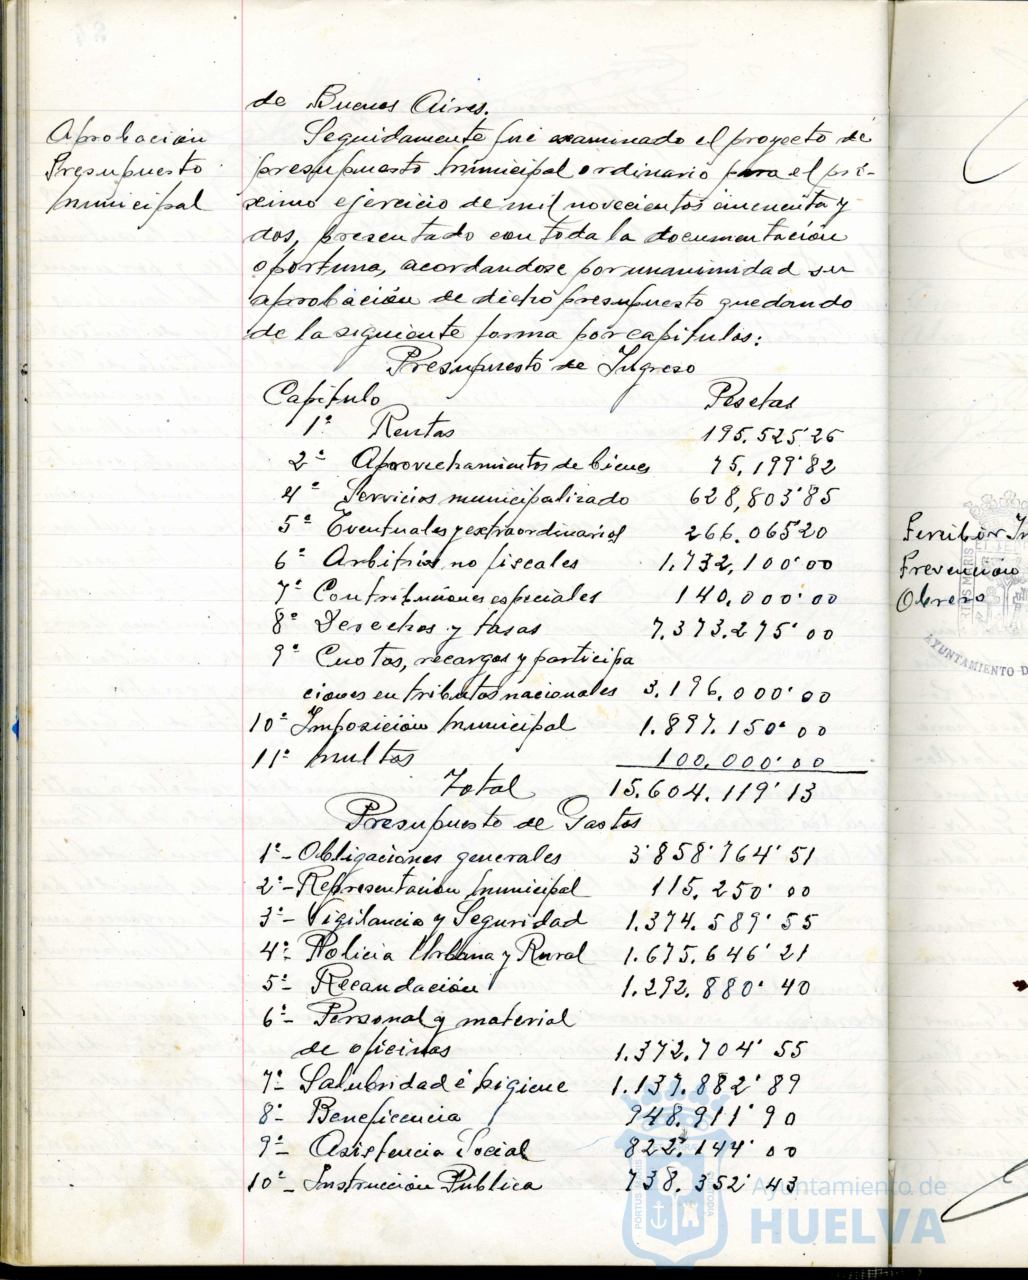 de Buenos Aires.
Aprobación
Presupuesto
municipal
Seguidamente fué examinado el proyecto de
presupuesto municipal ordinario para el pró-
ximo ejercicio de mil novecientos cincuenta y
dos, presentado con toda la documentación
oportuna, acordandose por unanimidad su
aprobación de dicho presupuesto quedando
de la siguiente forma por capitulos:
Presupuesto de Ingreso
Capítulo Pesetas
1º Rentas 195.525'26
2º Aprovechamientos de bienes 75,199'82
4º Servicios municipalizado 628,803'85
5º Eventuales y extraordinarios 266.065'20
6º Arbitrios no fiscales 1.732,100'00
7º Contribuciones especiales 140.000'00
8º Derechos y tasas 7.373.275'00
9º Cuotas, recargos y participa
ciones en tributos nacionales 3.196.000'00
10º Imposición municipal 1.897.150'00
11º multas 100.000'00
Total 15.604.119'13
Presupuesto de Gastos
1º- Obligaciones generales 3'858'764'51
2º- Representación municipal 115.250'00
3º- Vigilancia y Seguridad 1.374.589'55
4º- Policia Urbana y Rural 1.675.646'21
5º- Recaudación 1.292.880'40
6º- Personal y material
de oficinas 1.372.704'55
7º- Salubridad é higiene 1.137.882'89
8º- Beneficencia 948.911'90
9º- Asistencia Social 822.144'00
10º- Instrucción Publica 738.352'43
Prevención
Obrero
AYUNTAMIENTO D
Ayuntamiento de
HUELVA